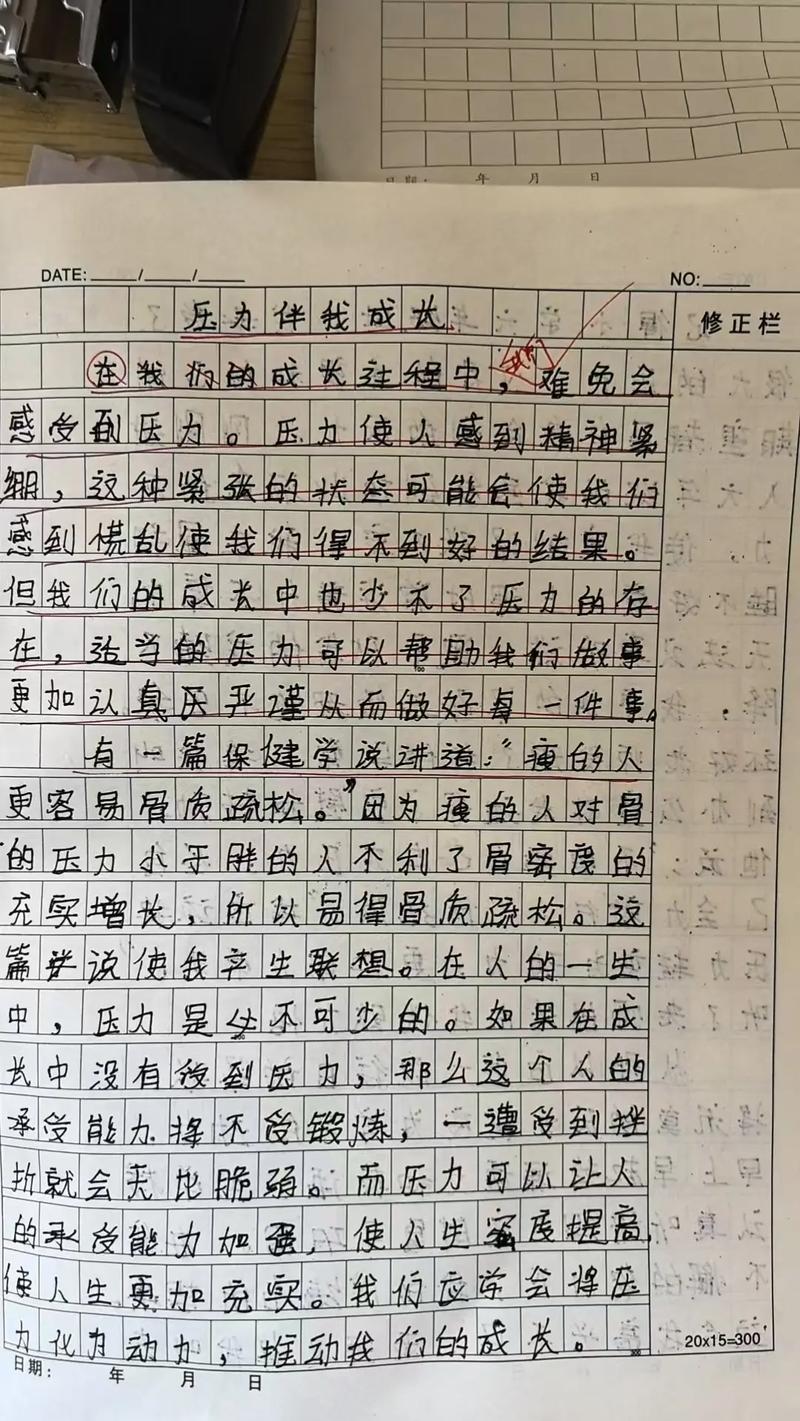 日期: 年 月 日
DATE: / /
NO:
压力伴我成长
修正栏
在我们的成长过程中，我们难免会
感受到压力。压力使人感到精神紧
绷，这种紧张的状态可能会使我们
感到慌乱使我们得不到好的结果。
但我们的成长中也少不了压力的存
在，适当的压力可以帮助我们做事
更加认真严谨从而做好每一件事。
有一篇保健学说讲道：“瘦的人
更容易骨质疏松。”因为瘦的人对骨
的压力小于胖的人不利了骨密度的
充实增长，所以易得骨质疏松。这
篇学说使我产生联想。在人的一生
中，压力是必不可少的。如果在成
长中没有受到压力，那么这个人的
承受能力将不受锻炼，一遭受到挫
折就会无比脆弱。而压力可以让人
的承受能力加强，使人生密度提高，
使人生更加充实。我们应学会将压
力化为动力，推动我们的成长。
20x15=300
日期: 年 月 日